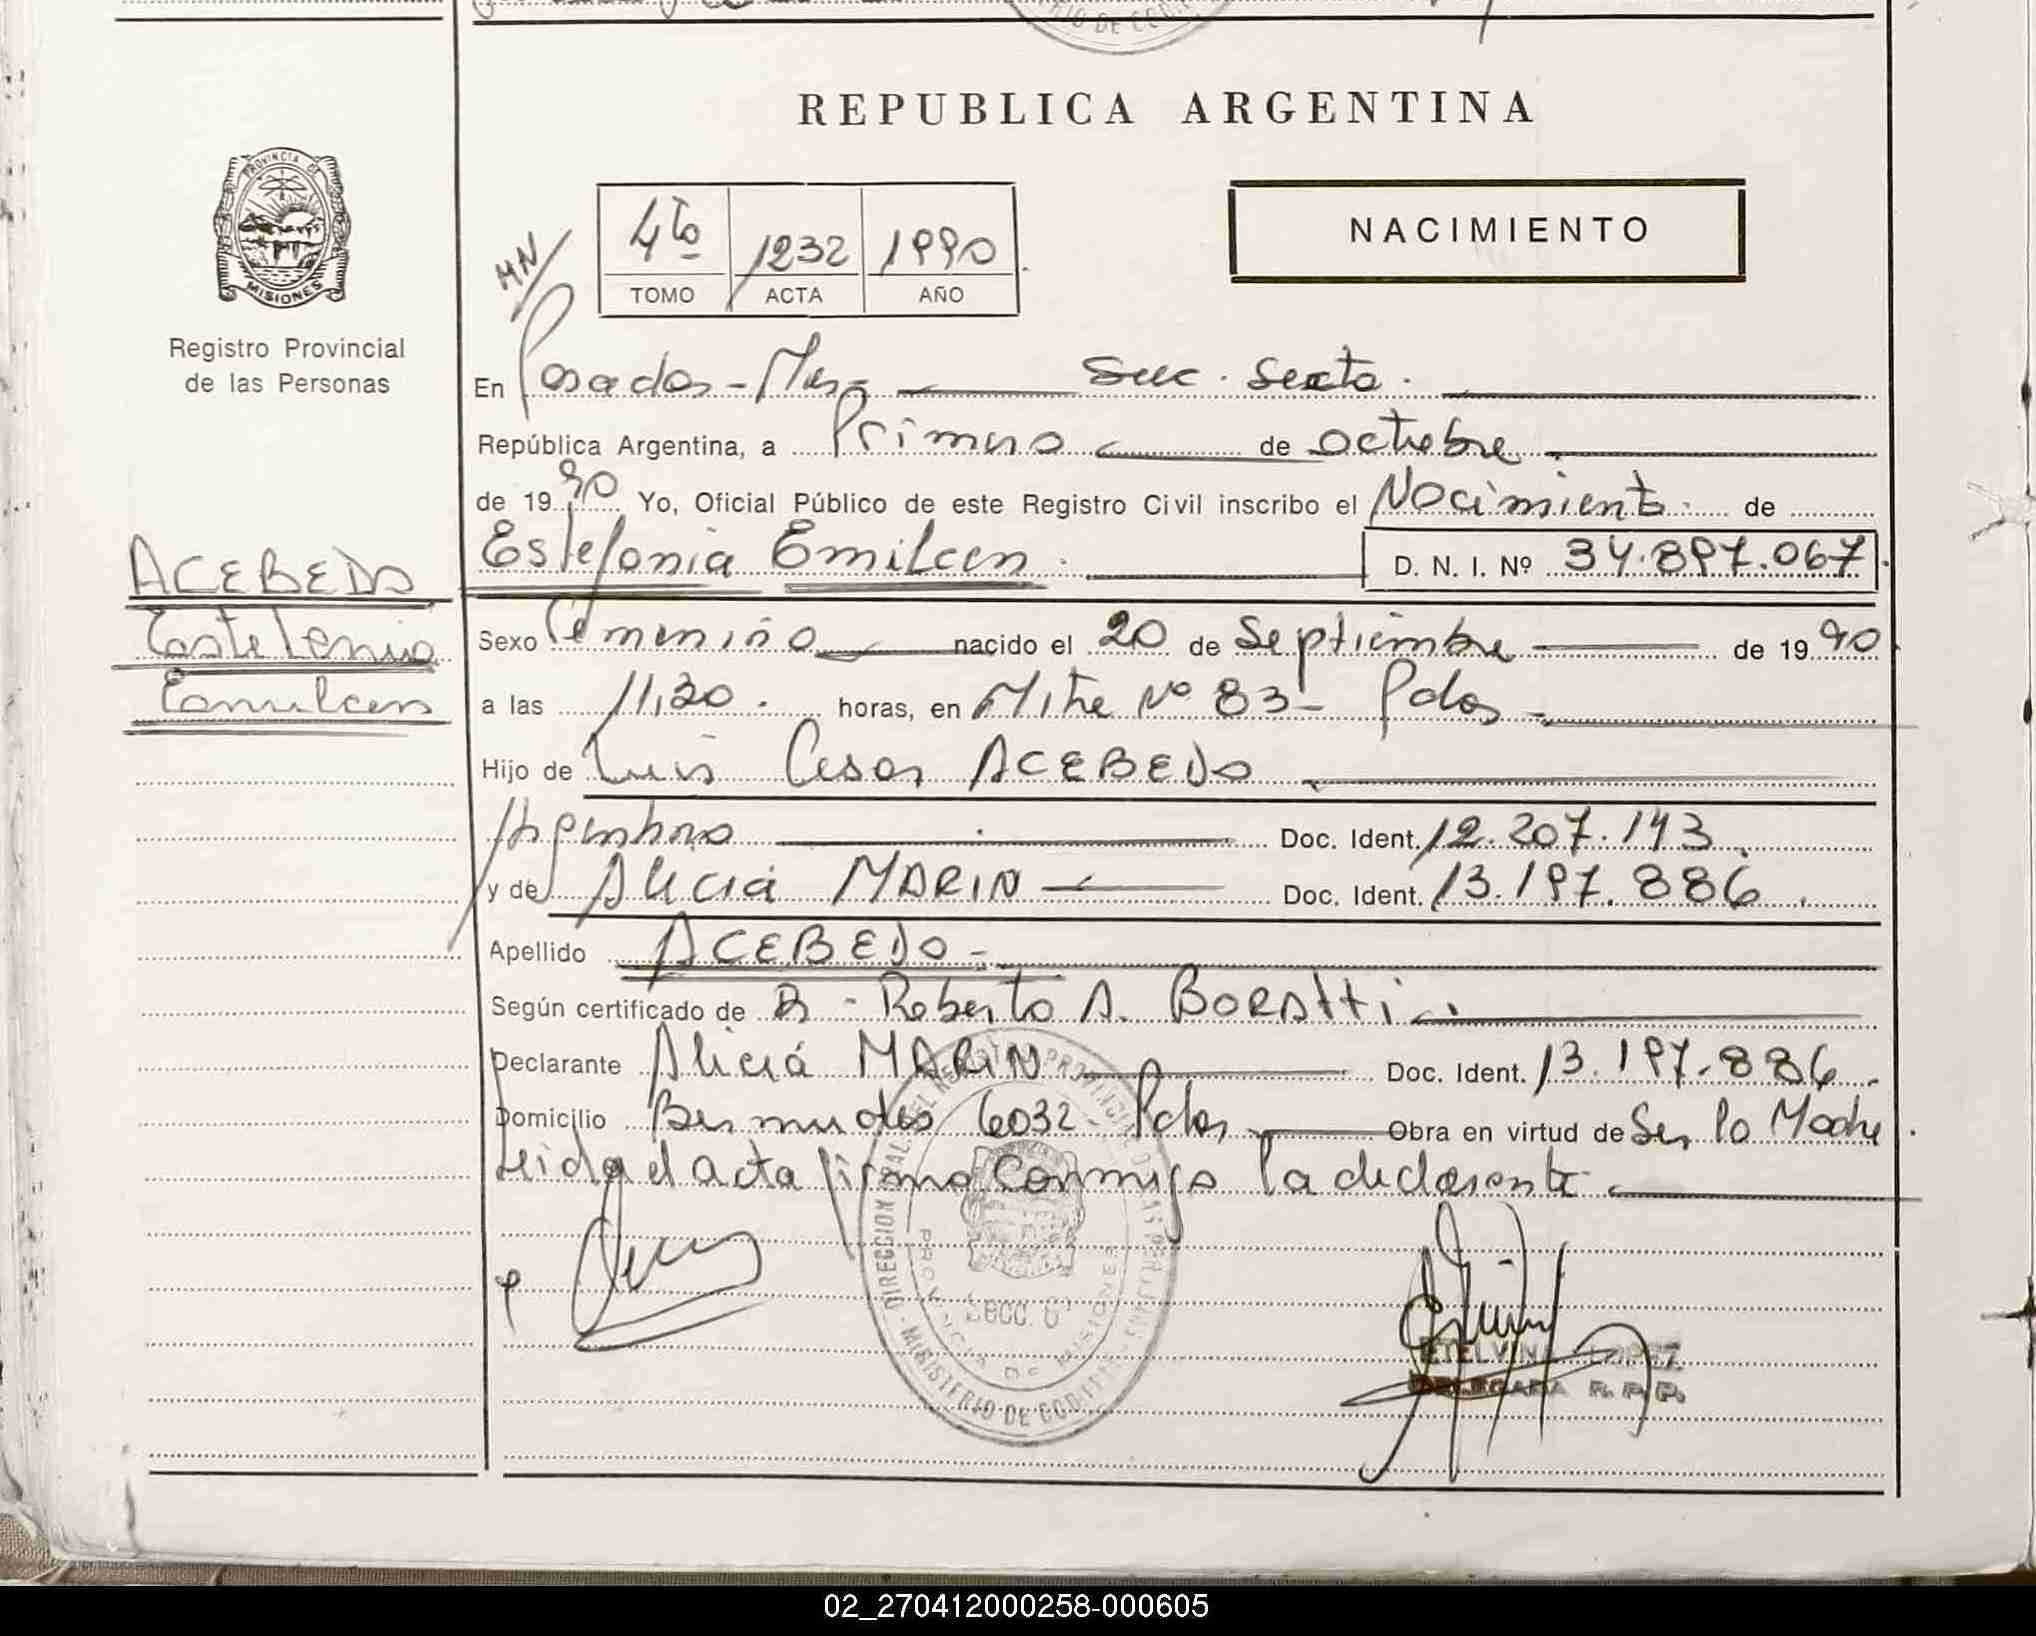 REPUBLICA ARGENTINA
PROVINCIA DE
MISIONES
Registro Provincial
de las Personas
HN
4to 1232 1990
TOMO ACTA AÑO
NACIMIENTO
En Posadas - Mnes - Secc. Sexta.
República Argentina, a Primero de octubre
de 1990 Yo, Oficial Público de este Registro Civil inscribo el Nacimiento de
Estefania Emilcen D. N. I. Nº 34.897.067
ACEBEDO
Estefania
Emilcen
Sexo femenino nacido el 20 de Septiembre de 1990
a las 11,30 horas, en Mitre Nº 83 - Pdas -
Hijo de Luis Cesar ACEBEDO
Argentino Doc. Ident. 12.207.143
y de Alicia MARIN Doc. Ident. 13.197.886
Apellido ACEBEDO -
Según certificado de Dr - Roberto A. BORATTI
Declarante Alicia MARIN Doc. Ident. 13.197.886
Domicilio Bermudes 6032 - Pdas Obra en virtud de Ser la Madre
Leida el acta firma conmigo la declarante
DIRECCION GRAL. DEL REGISTRO PROVINCIAL DE LAS PERSONAS
SECC. 6
PROVINCIA DE MISIONES
MINISTERIO DE GOBIERNO
ETELVINA LOPEZ
DELEGADA R. P. P.
02_270412000258-000605